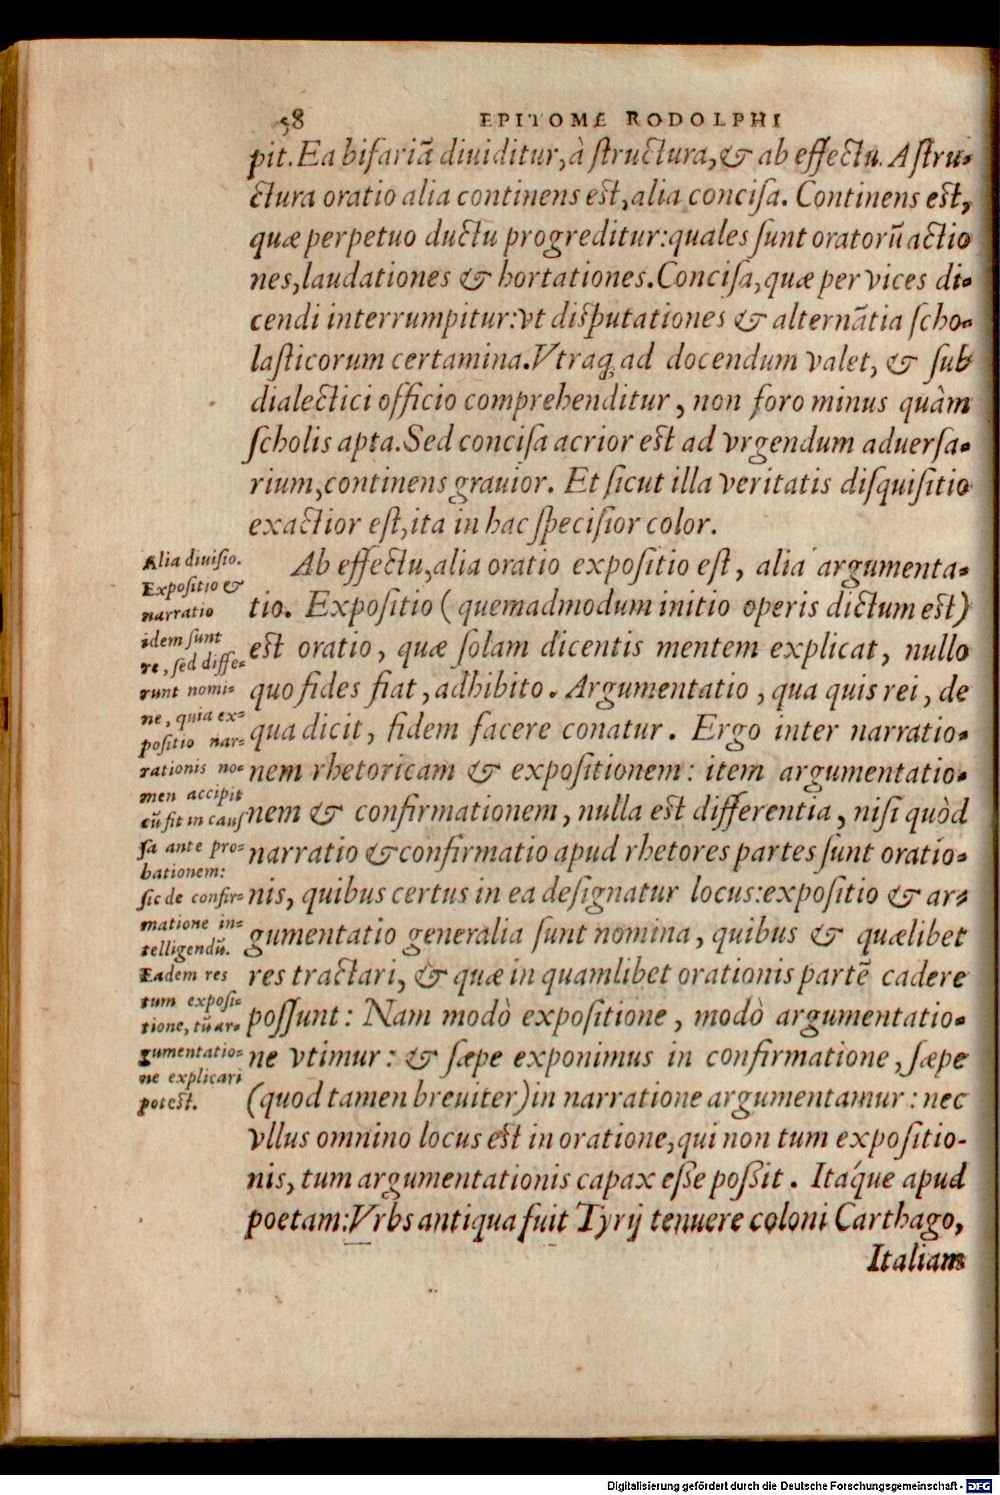 58 EPITOME RODOLPHI
pit. Ea bifariã diuiditur, à ſtructura, & ab effectu. A ſtru-
ctura oratio alia continens eſt, alia conciſa. Continens eſt,
quæ perpetuo ductu progreditur: quales ſunt oratorũ actio
nes, laudationes & hortationes. Conciſa, quæ per vices di-
cendi interrumpitur: vt diſputationes & alternãtia ſcho-
laſticorum certamina. Vtraq; ad docendum valet, & ſub
dialectici officio comprehenditur, non foro minus quàm
ſcholis apta. Sed conciſa acrior eſt ad vrgendum aduerſa-
rium, continens grauior. Et ſicut illa veritatis diſquiſitio
exactior eſt, ita in hac ſpeciſior color.
Alia diuiſio.
Expoſitio &
narratio
idem ſunt
re, ſed diffe-
runt nomi-
ne, quia ex-
poſitio nar-
rationis no-
men accipit
cũ fit in cauſ
ſa ante pro-
bationem:
ſic de confir-
matione in-
telligendũ.
Eadem res
tum expoſi-
tione, tũ ar-
gumentatio-
ne explicari
poteſt.
Ab effectu, alia oratio expoſitio eſt, alia argumenta-
tio. Expoſitio (quemadmodum initio operis dictum eſt)
eſt oratio, quæ ſolam dicentis mentem explicat, nullo
quo fides fiat, adhibito. Argumentatio, qua quis rei, de
qua dicit, fidem facere conatur. Ergo inter narratio-
nem rhetoricam & expoſitionem: item argumentatio-
nem & confirmationem, nulla eſt differentia, niſi quòd
narratio & confirmatio apud rhetores partes ſunt oratio-
nis, quibus certus in ea deſignatur locus: expoſitio & ar-
gumentatio generalia ſunt nomina, quibus & quælibet
res tractari, & quæ in quamlibet orationis partẽ cadere
poſſunt: Nam modò expoſitione, modò argumentatio-
ne vtimur: & ſæpe exponimus in confirmatione, ſæpe
(quod tamen breuiter) in narratione argumentamur: nec
vllus omnino locus eſt in oratione, qui non tum expoſitio-
nis, tum argumentationis capax eſſe poſſit. Itáque apud
poetam: Vrbs antiqua fuit Tyrij tenuere coloni Carthago,
Italiam
Digitalisierung gefördert durch die Deutsche Forschungsgemeinschaft - DFG